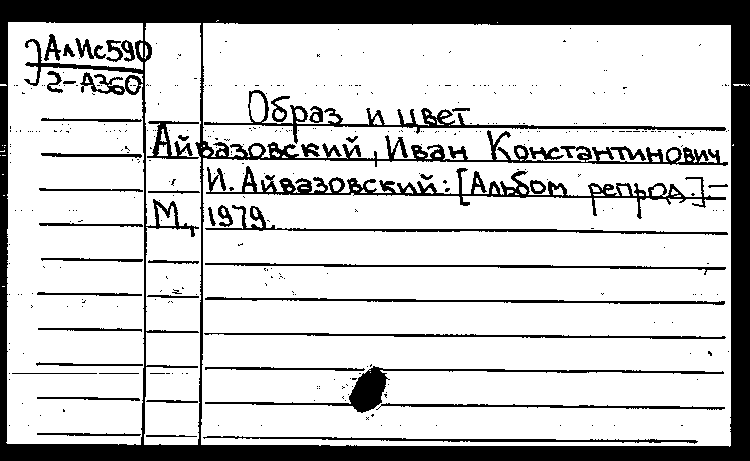 АлИс590
2-А360
Образ и цвет
Айвазовский, Иван Константинович.
И. Айвазовский: [Альбом репрод.] =
М., 1979.